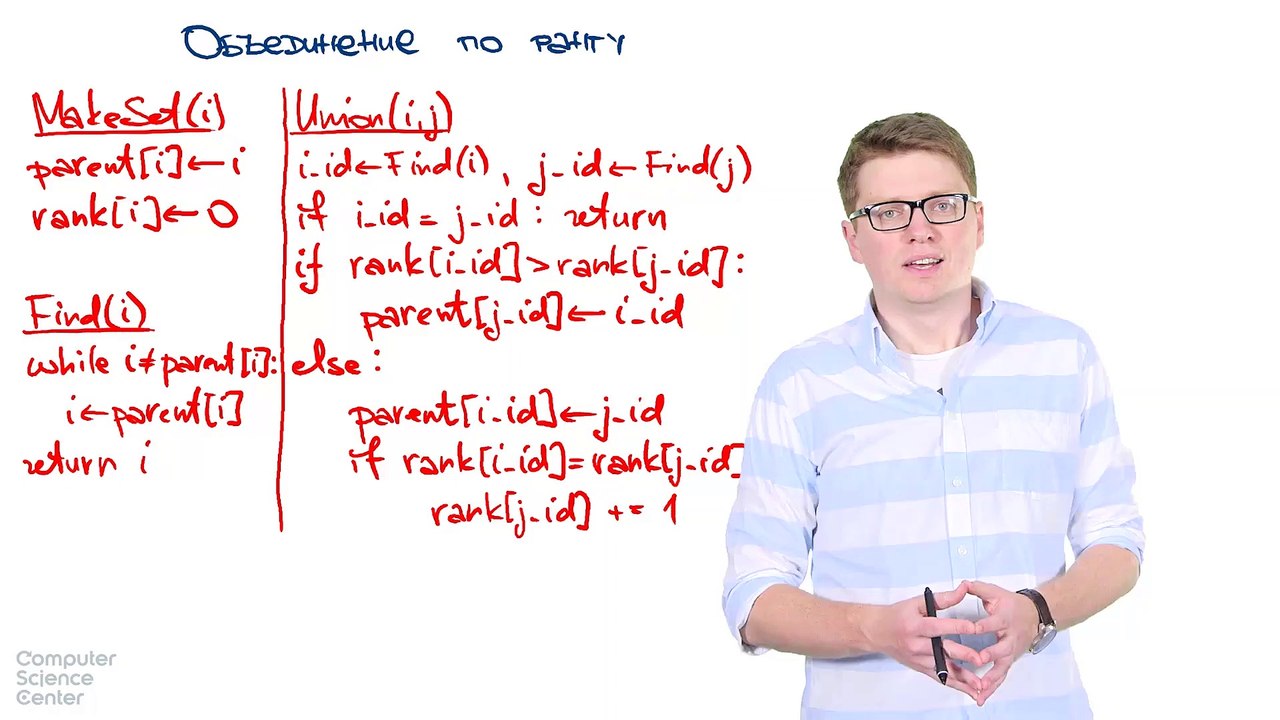 Объединение по рангу
MakeSet(i)
parent[i]←i
rank[i]←0
Find(i)
while i≠parent[i]:
i←parent[i]
return i
Union(i,j)
i_id←Find(i), j_id←Find(j)
if i_id = j_id : return
if rank[i_id]>rank[j_id]:
parent[j_id]←i_id
else:
parent[i_id]←j_id
if rank[i_id]=rank[j_id]
rank[j_id] += 1
Computer
Science
Center